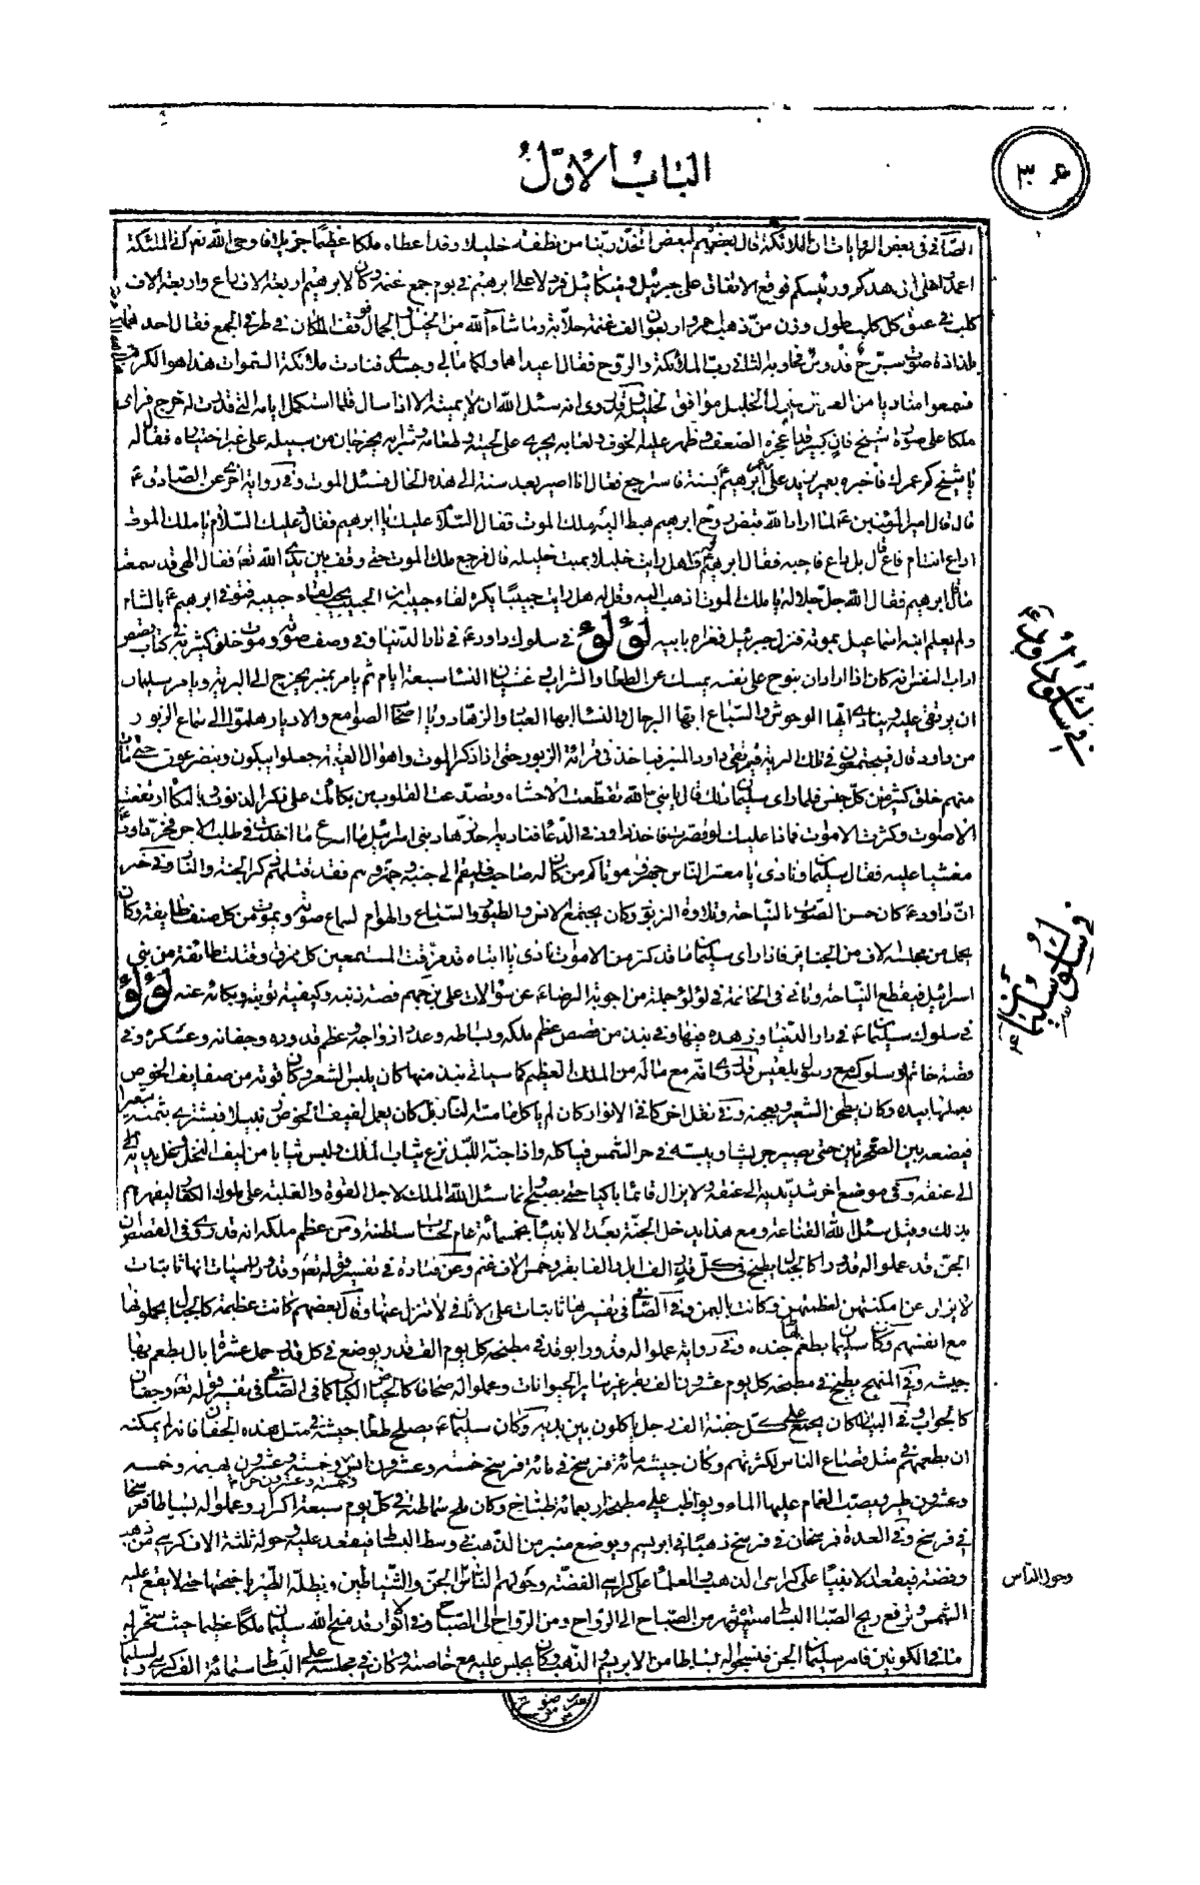 ٣٤
الباب الأول
الصافى فى بعض الروايات ان الملائكة قال بعضهم لبعض اتخذ ربنا من نطفة خليلا وقد اعطاه ملكا عظيما جزيلا فاوحى الله تعالى الى الملئكة
اعمدوا على ازهدكم ورئيسكم فوقع الاتفاق على جبرئيل وميكائيل فنزلا على ابرهيم فى يوم جمع غنمه وكان لابرهيم اربعة الاف راع واربعة الاف
كلب فى عنق كل كلب طوق وزن من ذهب احمر واربعون الف غنمة حلابة وما شاء الله من الخيل والجمال فوقف الملكان فى طرفى الجمع فقال احدهما
بلذاذة صوت سبوح قدوس فجاوبه الثانى رب الملائكة والروح فقال اعيداهما ولكما مالى وجسدى فنادت ملائكة السموات هذا هو الكرم
فسمعوا مناديا من العرش يقول الخليل موافق لخليله وقد روى انه سئل الله ان لا يميته الا اذا سال فلما استكمل ايامه التى قدرت له خرج فراى
ملكا على صورة شيخ فان كبير قد اعجزه الضعف وظهر عليه الخوف ولعابه يجرى على لحيته وطعامه وشرابه يخرجان من سبيله على غير اختياره فقال له
يا شيخ كم عمرك فاخبره بعمر يزيد على عمر ابرهيم بسنة فاسترجع فقال انا اصير بعد سنة الى هذه الحال فسئل الموت وفى رواية اخرى عن الصادق ع
قال قال امير المؤمنين ع لما اراد الله قبض روح ابرهيم هبط اليه ملك الموت فقال السلام عليك يا ابرهيم فقال وعليك السلام يا ملك الموت
اداع انت ام ناع قال بل داع فاجبه فقال ابرهيم فهل رايت خليلا يميت خليله قال فرجع ملك الموت حتى وقف بين يدى الله تعالى فقال الهى قد سمعت
ما قال ابرهيم فقال الله جل جلاله يا ملك الموت اذهب اليه وقل له هل رايت حبيبا يكره لقاء حبيبه ان الحبيب يحب لقاء حبيبه فتوفى ابرهيم ع بالشام
ولم يعلم ابنه اسماعيل بموته فنزل جبرئيل فعزاه بابيه لؤلؤ فى سلوك داود ع فى دار الدنيا وفى وصف صوته وموت خلق كثير به فى كتاب قصص
كان اذا اراد ان ينوح على نفسه يمسك عن الطعام والشراب وغشيان النساء سبعة ايام ثم يامر بمنبر يخرج الى البرية ويامر سليمان
ان يرتقى عليه وينادى ايها الوحوش والسباع ايها الرجال والنساء ايها العباد والزهاد ويا اصحاب الصوامع والاديار هلموا الى سماع الزبور
من داود قال فيجتمعون فى تلك البرية فيرتقى داود المنبر فياخذ فى قرائة الزبور حتى اذا ذكر الموت واهوال القيمة جعلوا يبكون ويتضرعون حتى مات
منهم خلق كثير من كل جنس فلما راى سليمان ذلك قال يا نبى الله تقطعت الاحشاء وتصدعت القلوب من بكائك على ذكر الذنوب
الاصوات وكثرت الاموات فماذا عليك لو قصرت فاخذ داود فى الدعاء فناداه احد عباد بنى اسرئيل ما اسرع ما اخذت فى طلب الاجر فخر داود
مغشيا عليه فقال سليمان ونادى يا معشر الناس جهزوا موتاكم من كان له صاحب فليقم الى جنبه ويجهزه فقد قتلهم ذكر الجنة والنار وفى خبر
ان داود ع كان حسن الصوت بالنياحة وتلاوة الزبور وكان يجتمع الانس والطيور والسباع والهوام لسماع صوته ويموت من كل صنف طايفة وكان
يحمل من مجلسه الاف من الجنايز فاذا راى سليمان ما قد كثر من الاموات نادى يا ابتاه قد مزقت المستمعين كل ممزق وقتلت طائفة من بنى
اسرائيل فيقطع النياحة وتاتى فى الخاتمة فى لؤلؤ جملة من اجوبة الرضا ع عن سؤالات على بن جهم قصة ذنبه وكيفية توبته وبكائه عنه لؤلؤ
فى سلوك سليمان ع فى دار الدنيا وزهده فيها وفى نبذ من قصص عظم ملكه وبساطه وعدد ازواجه وعظم قدوره وجفانه وعسكره وفى
قصة خاتمه وسلوكه مع رسول بلقيس قد روى انه مع ماله من الملك العظيم كما سياتى نبذ منها كان يلبس الشعر وكان قوته من سفايف الخوص
يعملها بيده وكان يطحن الشعير ويعجنه وفى نقل اخر كما فى الانوار كان لم ياكل ما مسته النار بل كان يعمل لفيف الخوص زنبيلا فيشترى بثمنه شعيرا
فيضعه بين الصخرتين حتى يصير جريشا ويبسه فى حر الشمس فياكله واذا جنه الليل نزع ثياب الملك ولبس ثيابا من ليف النخل وغل يديه
الى عنقه وفى موضع اخر شد يديه الى عنقه ولا يزال قائما باكيا حتى يصبح انما سئل الله الملك لاجل القوة والغلبة على ملوك الكفار ليقهرهم
بذلك وقيل سئل الله القناعة ومع هذا يدخل الجنة بعد الانبياء بخمسمائة عام لحساب سلطنته ومن عظم ملكه انه قد روى فى القصص ان
الجن قد عملوا له قدورا كالجبال يطبخ فى كل قدر الف ابل والف بقر وخمس الاف غنم وعن قتادة فى تفسير قوله تع وقدور راسيات انها ثابتات
لا يزلن عن امكنتهن لعظمتهن وكانت باليمن وفى الصافى فى تفسيرها ثابتات على الاثافى لا تنزل عنها وقال بعضهم كانت عظيمة كالجبال يحملونها
مع انفسهم وكان سليمان يطعم بها جنده وفى رواية عملوا له قدورا يوقد فى مطبخه كل يوم الف قدر يوضع فى كل قدر حمل عشرة ابال يطعم بها
جيشه وفى المنهج يطبخ فى مطبخه كل يوم عشرون الف بقر غير ساير الحيوانات وعملوا له صحافا كالحياض الكبار كما فى الصافى فى تفسير قوله تع وجفان
كالجواب وفى البيان كان يجتمع على كل جفنة الف رجل ياكلون بين يديه وكان سليمان ع يصلح طعام جيشه فى مثل هذه الجفان فانه لم يمكنه
ان يطعمهم فى مثل قصاع الناس لكثرتهم وكان جيشه مائة فرسخ فى مائة فرسخ خمسة وعشرون انس وخمسة وعشرون بهيمة وخمسة
وخمسة وعشرون جن
وعشرون طير ويصب الغمام عليها الماء ويواظب على مطبخه اربعمائة طباخ وكان ملح سماطه فى كل يوم سبعة اكرار وعملوا له بساطا فرسخا
فى فرسخ وفى العدة فرسخان فى فرسخ ذهبا فى ابريسم ويوضع منبر من الذهب فى وسط البساط فيقعد عليه وحوله ثلثة الاف كرسى من ذهب
وفضة فيقعد الانبياء على كراسى الذهب والعلماء على كراسى الفضة وحولهم الناس الجن والشياطين وتظله الطير باجنحتها حتى لا يقع عليه
وحول الناس
الشمس وترفع ريح الصبا البساط مسيرة شهر من الصباح الى الرواح ومن الرواح الى الصباح وفى الانوار قد منح الله سليمان ملكا عظيما حيث سخر له
ما فى الكونين فامر سليمان الجن فنسجوا له بساطا من الابريسم والذهب وكان يجلس عليه مع خاصته وكان فى مجلسه على البساط ستمائة الف كرسى
فى سلوك داود ع
فى سلوك سليمان ع